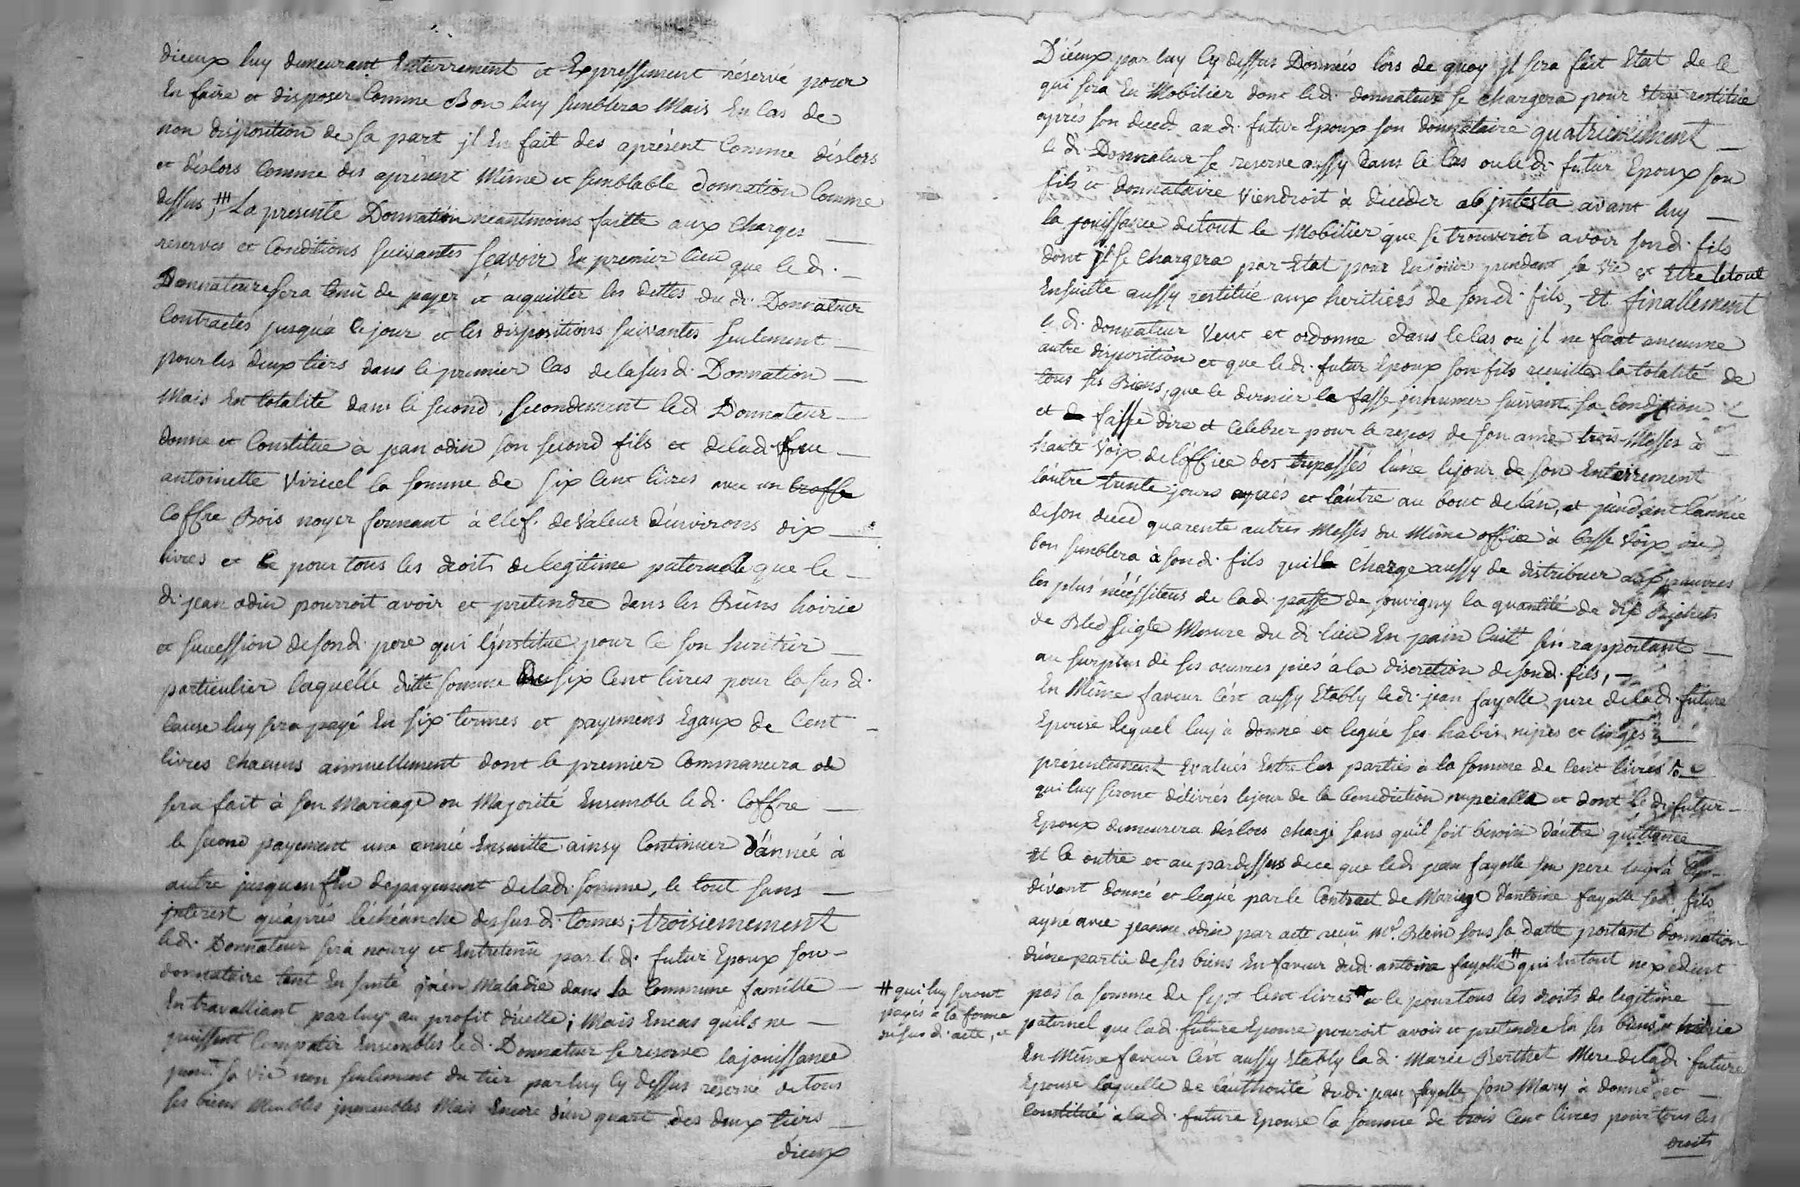 dieux luy demeurant Enterrement et Expressement réservé pour
En faire et disposer Comme Bon luy semblera Mais En Cas de
non disposition de sa part jl En fait des aprésent Comme déslors
et déslors Comme des aprésent Même et semblable donnation Comme
dessus, ## La presente Donnation neantmoins faitte aux Charges
reserves et Conditions suivantes sçavoir En premier lieu que le d.
Donnataire sera tenü de payer et acquitter les dettes du d. Donnateur
Contractés jusqu'a ce jour et les dispositions suivantes seulement
pour les deux tiers dans le premier Cas de la sus d. Donnation
Mais En totalité dans le second, secondement led. Donnateur
donne et Constitue à jean odin son second fils et de lad. feu
antoinette Viricel la somme de six Cent livres avec un
Coffre Bois noyer fermant à Clef. de Valeur d'environs dix
livres et Ce pour tous les droits de legitime paternelle que le
d. jean odin pourroit avoir et pretendre dans les Biens hoirie
et succession de son d. pere qui l'jnstitue pour Ce son heritier
particulier laquelle ditte somme de six Cent livres pour la sus d.
Cause luy sera payé En six termes et payemens Egaux de Cent
livres chacuns annuellement dont le premier Commancera et
sera fait à son Mariage ou Majorité Ensemble le d. Coffre
le second payement une année Ensuitte ainsy Continuer d'année à
autre jusqu'en fin de payement de lad. somme, le tout sans
jnterest qu'aprés l'échéanche des sus d. termes; troisiemement
led. Donnateur sera noury et Entretenü par le d. futur Epoux son
donnataire tant En santé qu'en Maladie dans la Commune famille
En travalliant par luy au profit d'icelle; Mais En cas qu'ils ne
puissent Compatir Ensembles le d. Donnateur se reserve la jouissance
sa Vie non seulement du tier par luy Cy dessus réservé de tous
ses biens Meubles jmmeubles Mais Encore d'un quart des deux tiers
dieux
D'iéux par luy Cy dessus Donnés lors de quoy jl sera fait Etat de Ce
qui sera En Mobilier dont led. donnateur se chargera pour Etre restitué
aprés son deced au d. futur Epoux son donnataire quatriemement
le d. Donnateur se reserve aussy dans le Cas ou le d. futur Epoux son
fils et donnataire Viendroit à deceder ab jntesta avant luy
la jouissance de tout le Mobilier que se trouveroit avoir son d. fils
dont jl se chargera par Etat pour En jouir pendant sa Vie et Etre le tout
Ensuitte aussy restitué aux heritiérs de son d. fils, Et finallement
le d. donnateur Veut et ordonne dans le Cas ou jl ne feroit aucunne
autre disposition et que led. futur Epoux son fils recuille la totalité de
tous ses Biens, que le dernier le fasse jnhumer suivant sa Condition
et fasse dire et Celebrer pour le repos de son ame trois Messes à
haute Voix de l'office des trepassés l'une le jour de son Enterrement
l'autre trente jours aprés et l'autre au bout de l'an, et pendant l'année
de son deced quarente autres Messes du Même office à basse Voix ou
bon semblera à son d. fils qu'il charge aussy de distribuer aux pauvres
les plus nécéssiteux de la d. passe de souvigny la quantité de dix Bichets
de Bled seigle Mesure du d. lieu En pain Cuitt s'en rapportant
au surplus de ses oeuvres pies à la discretion de son d. fils,
En Même faveur C'est aussy Etably led. jean fayolle pere de lad. future
Epouse lequel luy à donné et legué ses habis, nipes et linges
présentement Evalués Entre les parties à la somme de Cent livres
qui luy seront délivrés le jour de la benediction nupcialle et dont le d. futur
Epoux demeurera déslors chargé sans qu'il soit besoin d'autre quittance
Et Ce outre et au pardessus de ce que led. jean fayolle son pere luy à Cy
dévant donné et legué par le Contract de Mariage d'antoine fayolle son fils
ayné avec jeanne odin par acte reçu Me. Blein sous sa datte portant donnation
d'une partie de ses biens En faveur dud. antoine fayolle ## qui En tout n'exedent
pas la somme de sept Cent livres et Ce pour tous les droits de legitime
## qui luy seront
payés à la forme
du sus d. acte, et
paternel que lad. future Epouse pouroit avoir et pretendre En ses biens et hoirie
En Même faveur C'est aussy Etably la d. Marie Berthet Mere de lad. future
Epouse laquelle de l'authorité dud. jean fayolle son Mary à donné et
Constitué à la d. future Epouse la somme de trois Cent livres pour tous les
droits